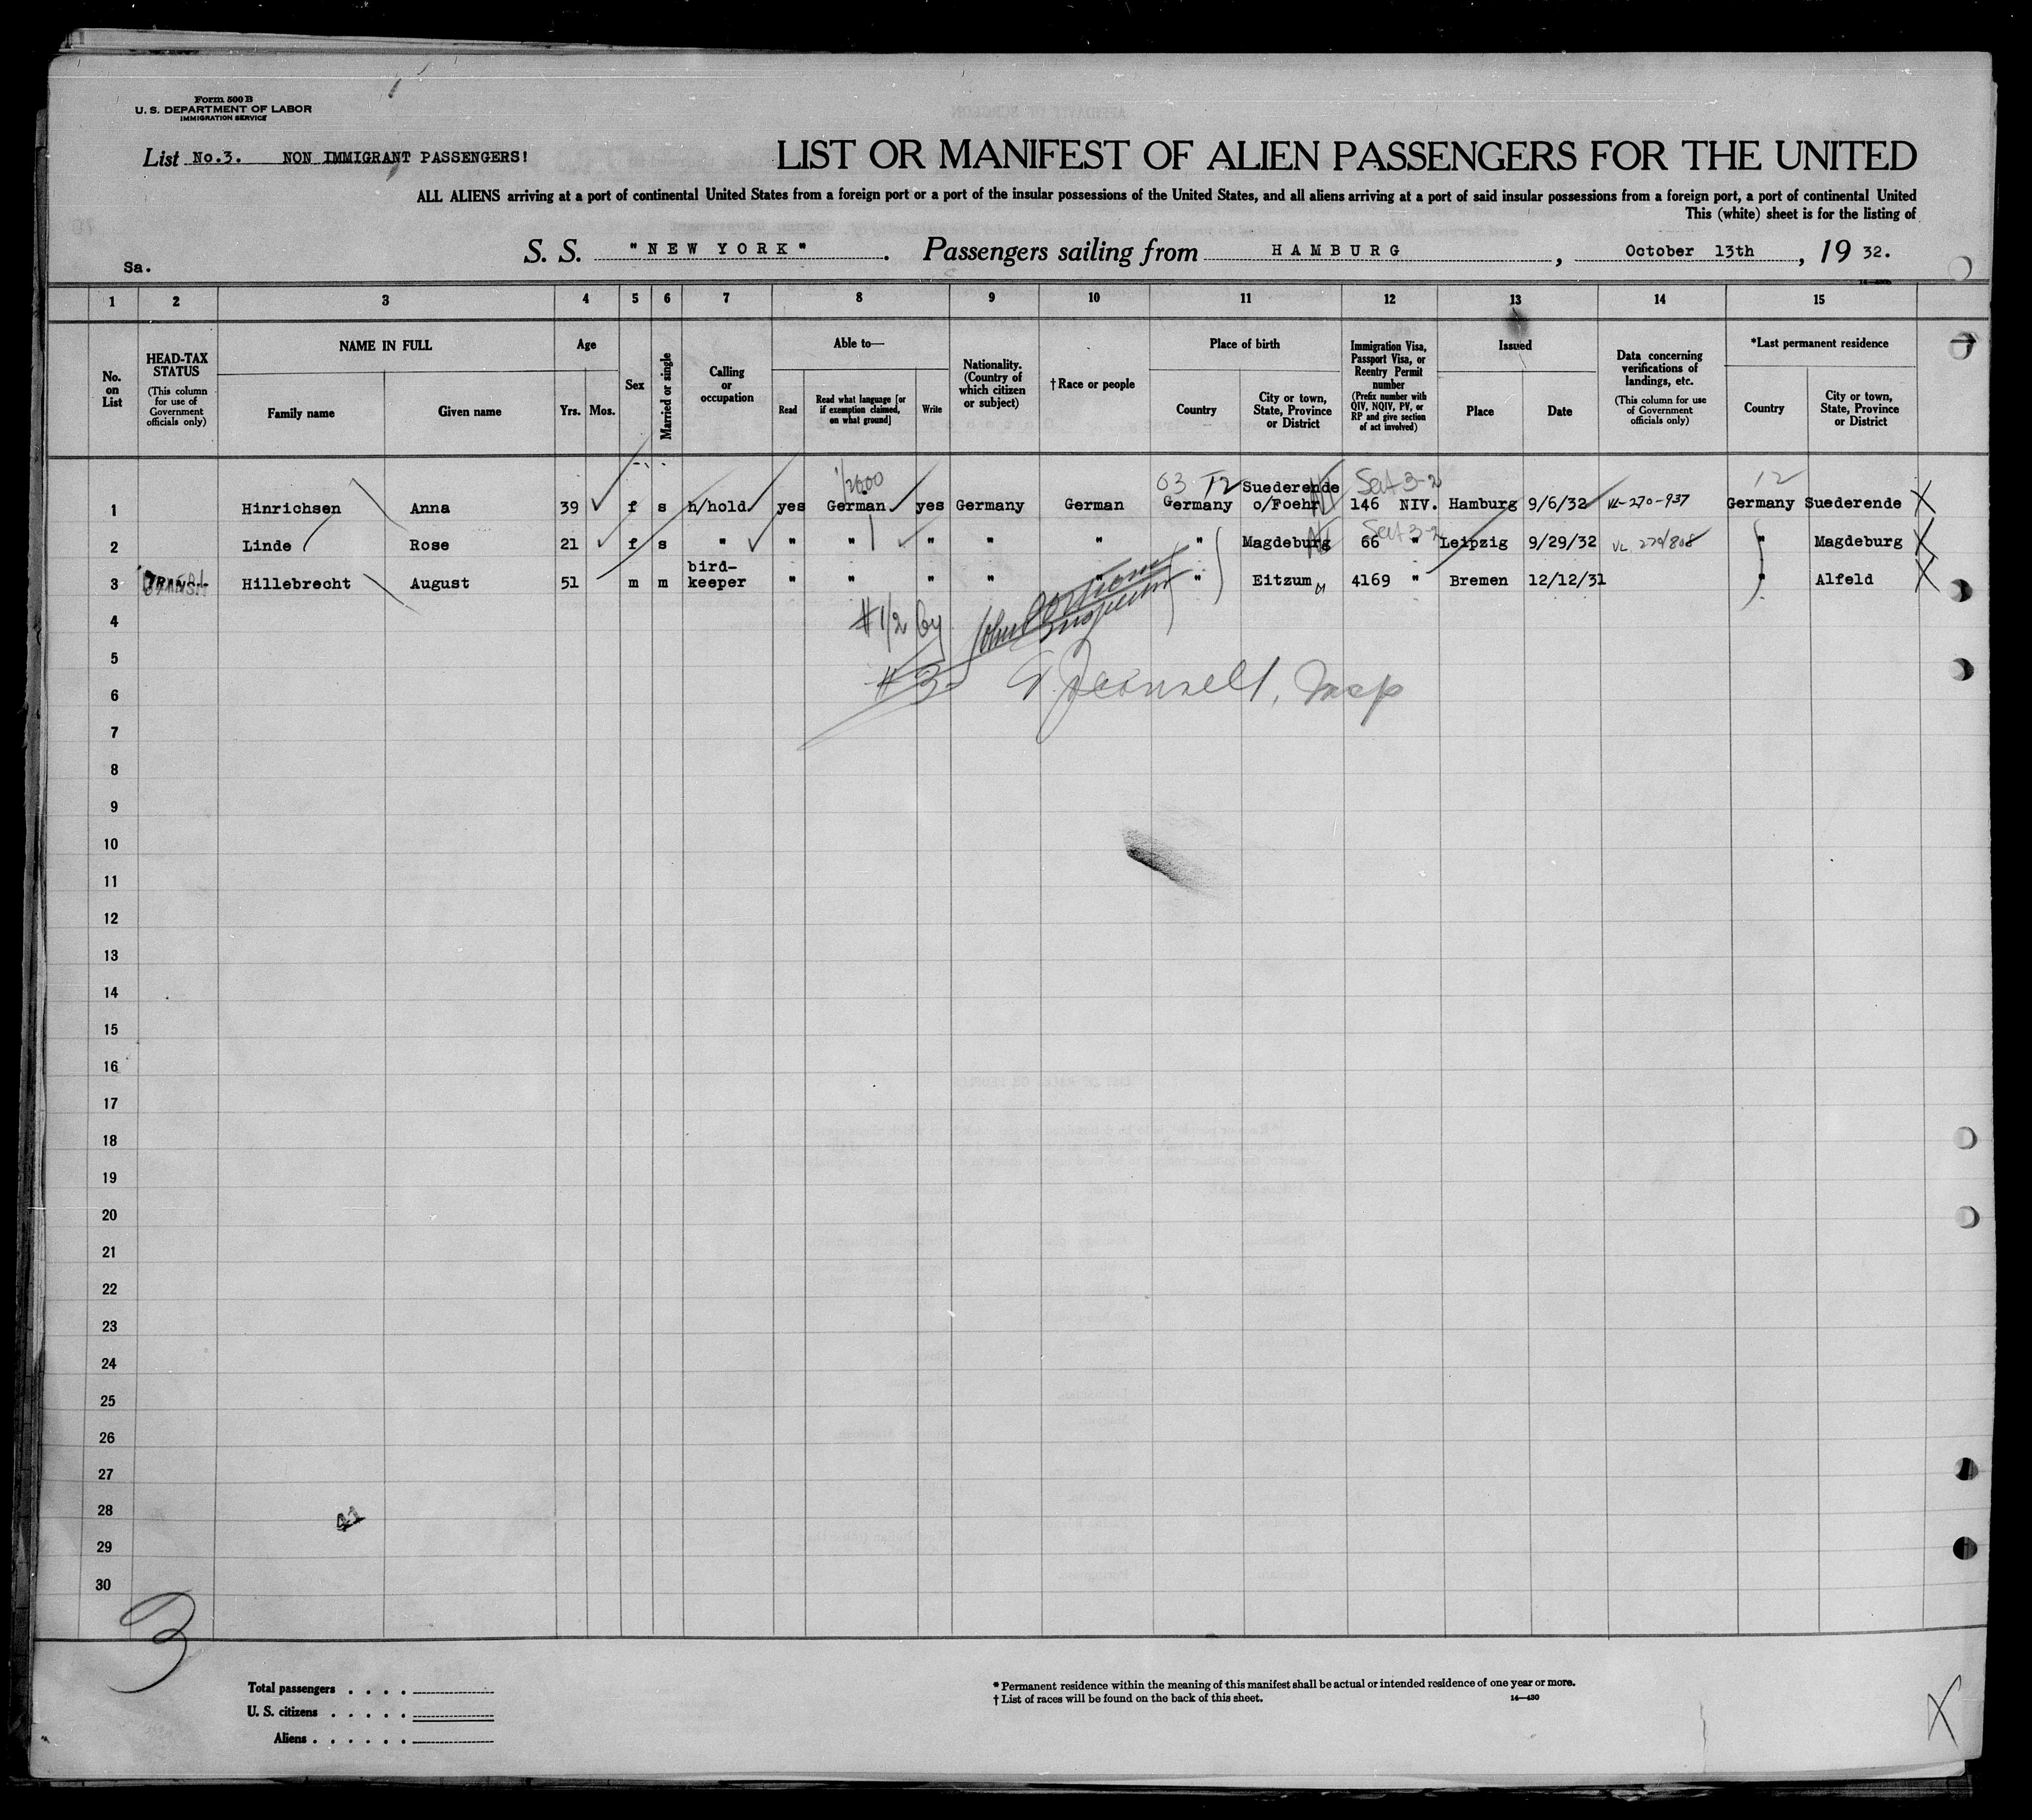 Form 500 B
U. S. DEPARTMENT OF LABOR
IMMIGRATION SERVICE
List No.3. NON IMMIGRANT PASSENGERS!
LIST OR MANIFEST OF ALIEN PASSENGERS FOR THE UNITED
ALL ALIENS arriving at a port of continental United States from a foreign port or a port of the insular possessions of the United States, and all aliens arriving at a port of said insular possessions from a foreign port, a port of continental United
This (white) sheet is for the listing of
Sa.
S. S. "NEW YORK". Passengers sailing from HAMBURG, October 13th, 19 32.
1 2 3 4 5 6 7 8 9 10 11 12 13 14 15
No. on List
HEAD-TAX STATUS
(This column for use of Government officials only)
NAME IN FULL
Family name
Given name
Age
Yrs.
Mos.
Sex
Married or single
Calling or occupation
Able to—
Read
Read what language [or if exemption claimed, on what ground]
Write
Nationality. (Country of which citizen or subject)
† Race or people
Place of birth
Country
City or town, State, Province or District
Immigration Visa, Passport Visa, or Reentry Permit number
(Prefix number with QIV, NQIV, PV, or RP and give section of act involved)
Issued
Place
Date
Data concerning verifications of landings, etc.
(This column for use of Government officials only)
*Last permanent residence
Country
City or town, State, Province or District
03 12 Sect 3-2 12
1 Hinrichsen Anna 39 f s h/hold yes German yes Germany German Germany Suederende o/Foehr 146 NIV. Hamburg 9/6/32 VL-270-937 Germany Suederende X
Sect 3-2
2 Linde Rose 21 f s " " " " " " " Magdeburg 66 " Leipzig 9/29/32 VL 270/808 " Magdeburg X
3 TRANSIT Hillebrecht August 51 m m bird-keeper " " " " " " Eitzum 4169 " Bremen 12/12/31 " Alfeld X
4 #1/2 by Inspector
5
#3
6
7
8
9
10
11
12
13
14
15
16
17
18
19
20
21
22
23
24
25
26
27
28
29
30
3
Total passengers . . . .
U. S. citizens . . . . .
Aliens . . . . . .
* Permanent residence within the meaning of this manifest shall be actual or intended residence of one year or more.
† List of races will be found on the back of this sheet.
14—430
X